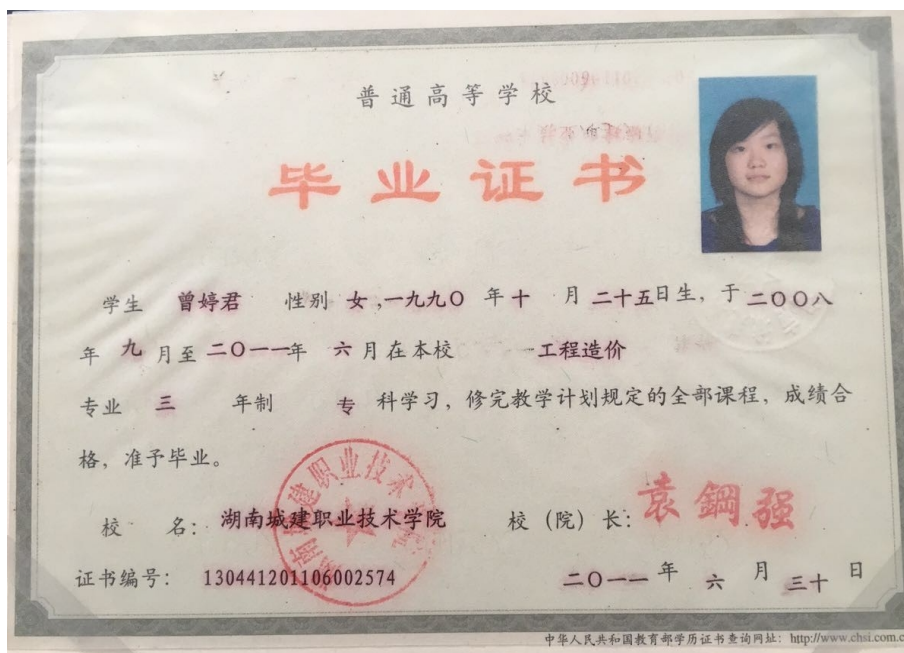 普通高等学校
毕业证书
学生 曾婷君 性别 女,一九九〇 年 十 月 二十五日生, 于 二〇〇八
年 九 月至 二〇一一年 六 月在本校 工程造价
专业 三 年制 专 科学习, 修完教学计划规定的全部课程, 成绩合
格, 准予毕业。
校 名: 湖南城建职业技术学院 校 (院) 长: 袁鋼强
证书编号: 130441201106002574 二〇一一 年 六 月 三十 日
中华人民共和国教育部学历证书查询网址: http://www.chsi.com.c